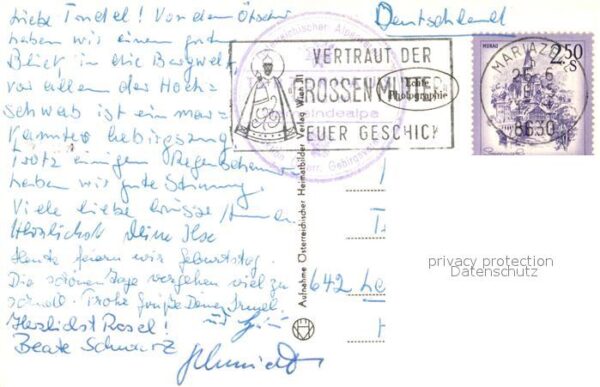 Liebe Trudel! Von dem Ötscher
haben wir einen gut
Blick in die Bergwelt,
vor allem der Hoch-
schwab ist ein mar-
kanter Gebirgszug
Trotz einigen Regenschauern
haben wir gute Stimmung.
Viele liebe Grüsse
Herzlichst Deine Ilse
Heute feiern wir Geburtstag.
Die schönen Tage vergehen viel zu
schnell. Frohe Grüße Deine Irmel.
Herzlichst Rosel! und
Beate Schwarz
Schmidt
Deutschland
VERTRAUT DER
GROSSEN MUTTER
EUER GESCHICK
Echte
Photographie
MARIAZELL
25.6.
8630
MURAU
2.50
S
Aufnahme Österreichischer Heimatbilder Verlag Wien III
642 Le
privacy protection
Datenschutz